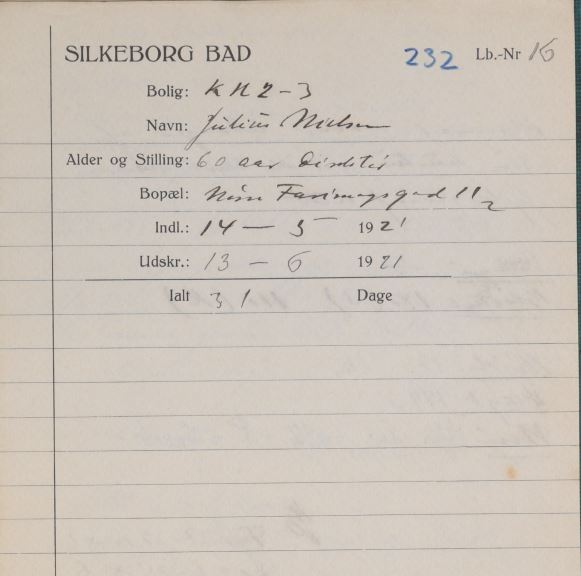 SILKEBORG BAD 232 Lb.-Nr 16
Bolig: K N 2 - 3
Navn: Julius Nielsen
Alder og Stilling: 60 aar
Bopæl: Farimagsgad 11 2
Indl.: 14 - 5 1921
Udskr.: 13 - 6 1921
Ialt 31 Dage